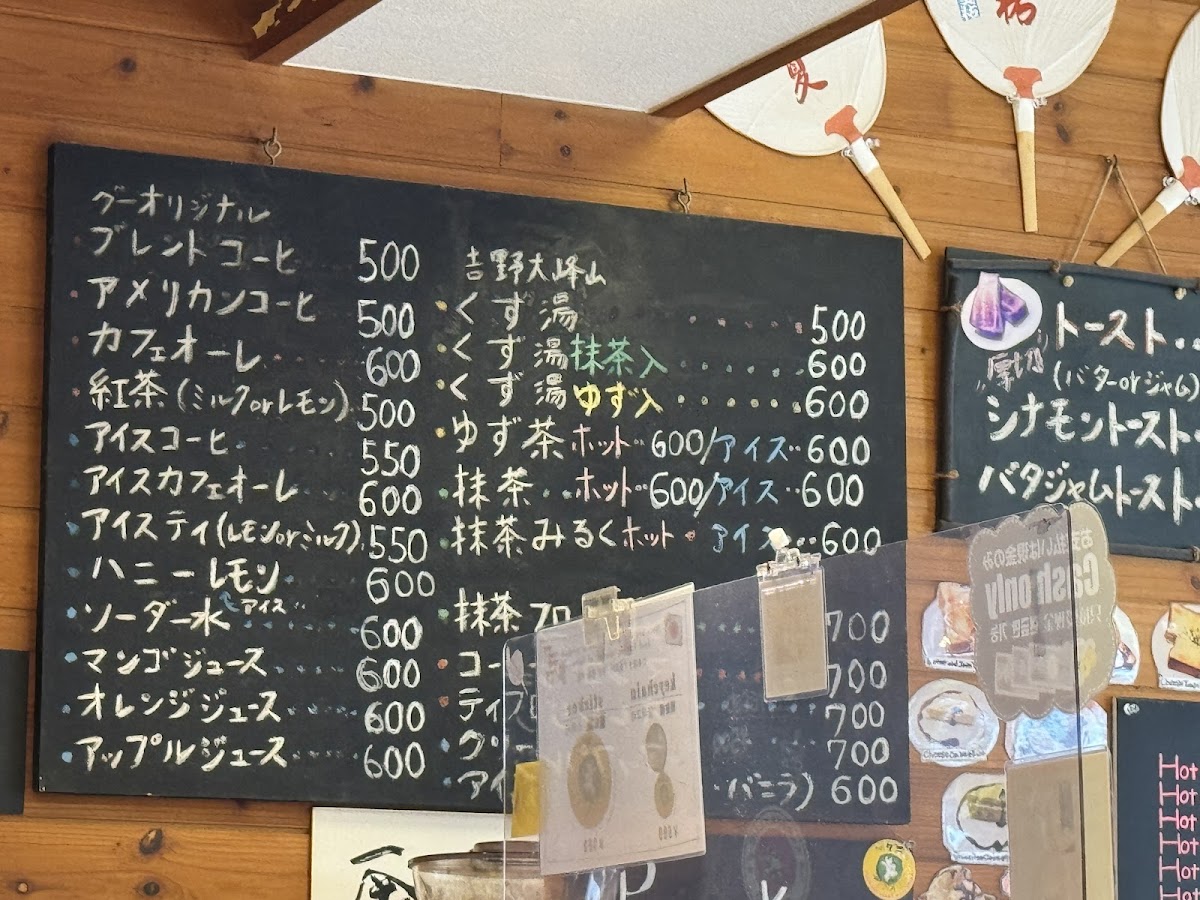 グーオリジナル
ブレンドコーヒ 500
アメリカンコーヒ 500
カフェオーレ 600
紅茶(ミルクorレモン) 500
アイスコーヒ 550
アイスカフェオーレ 600
アイスティ(レモンorミルク) 550
ハニーレモン 600
アイス
ソーダー水 600
マンゴジュース 600
オレンジジュース 600
アップルジュース 600
吉野大峰山
くず湯 500
くず湯抹茶入 600
くず湯ゆず入 600
ゆず茶 ホット 600/アイス 600
抹茶 ホット 600/アイス 600
抹茶みるく ホット・アイス 600
抹茶フロ 700
コー 700
ティフ 700
クリー 700
アイ バニラ) 600
夏
厚切
トースト
(バターorジャム)
シナモントースト
バタジャムトースト
お支払いは現金のみ
Cash only
keychain
sticker
¥500
Hot
Hot
Hot
Hot
Hot
Hot